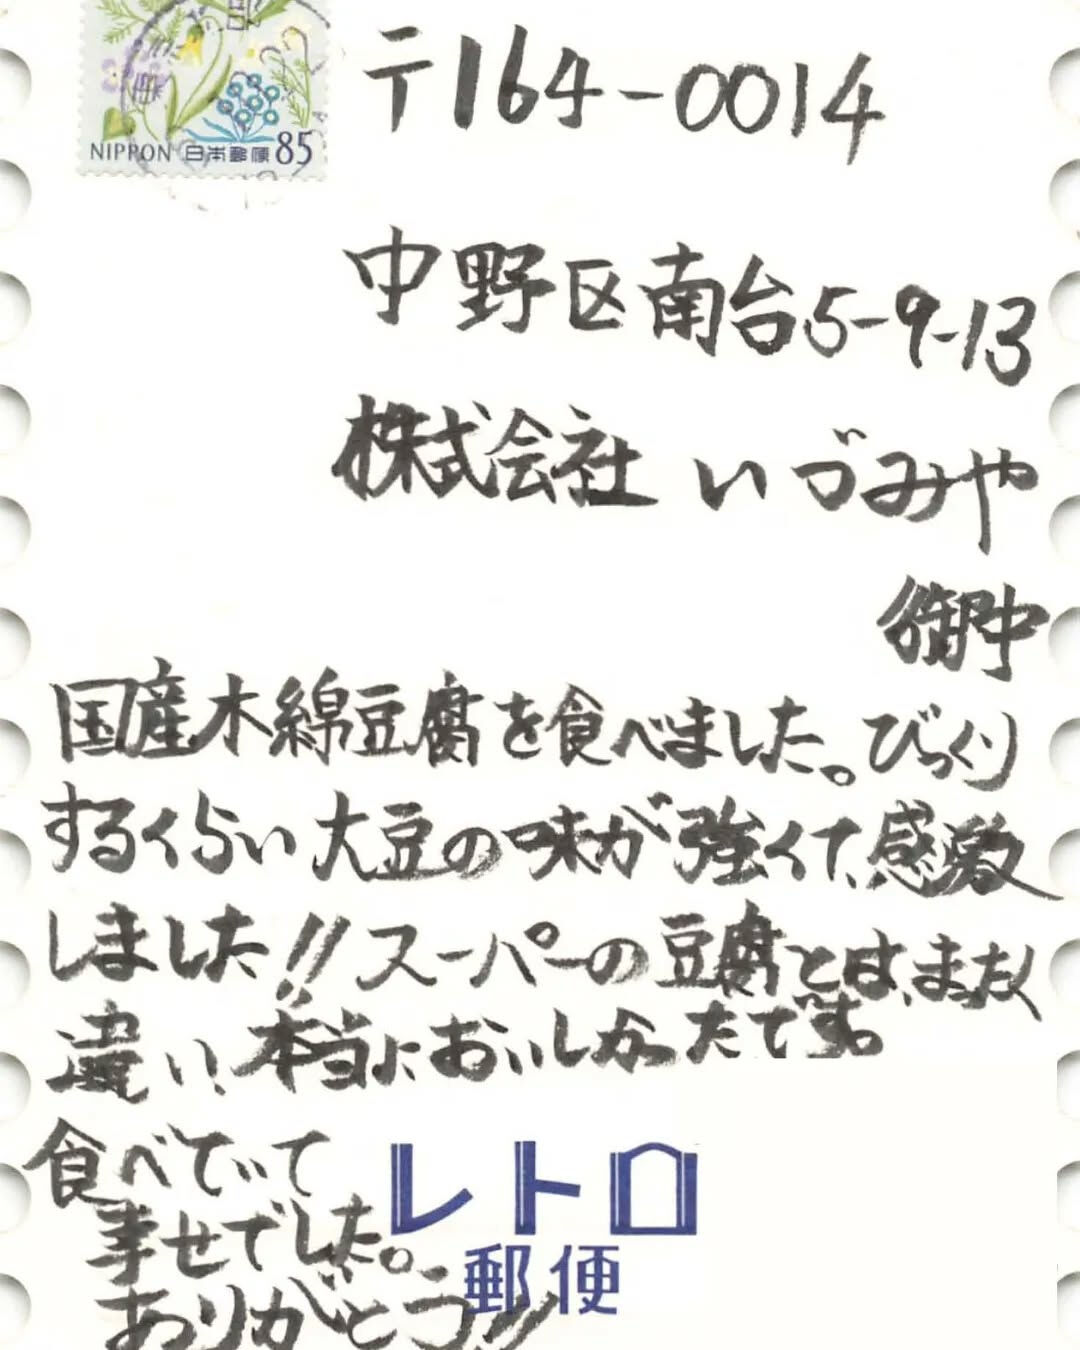 NIPPON 日本郵便 85
〒164-0014
中野区南台5-9-13
株式会社 いづみや
御中
国産木綿豆腐を食べました。びっくり
するくらい大豆の味が強くて、感激
しました!!スーパーの豆腐とは、まったく
違い、本当においしかったです。
食べていて
幸せでした。
ありがとう!!
レトロ
郵便